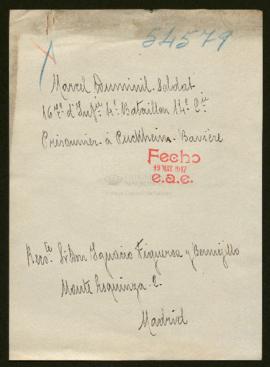 54579
Marcel Duminil. Soldat
167e d'Infie 4e Bataillon 14e Cie
Prisonnier à Puckheim. Bavière
Fecho
19 MAY 1917
e.a.e.
Rte. Sr Don Ignacio Figueroa y Bermejillo
Monte Esquinza. 2.
Madrid